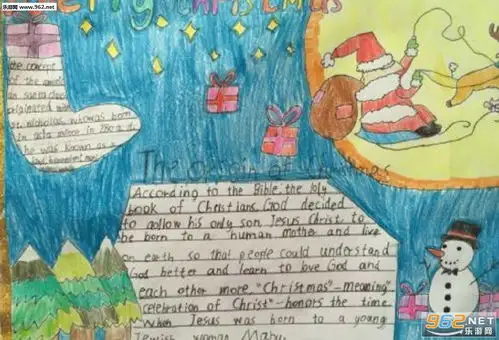 乐游网 www.962.net
Merry Christmas
the concept
of the americ
an santa claus
originated with
st. nicholas, who was born
in asia minor in 280 a.d.
he was known as a
The Origin of
According to the Bible, the loly
book of Christians, God decided
to aollow his only son, Jesus Christ to
be born to a human mother and live
on earth so that people could understand
God better and learn to love God and
each other more. "Christmas"-meaning
"celebration of Christ"-honors the time
when Jesus was born to a young
Jewish woman Mary.
962.NET
乐游网